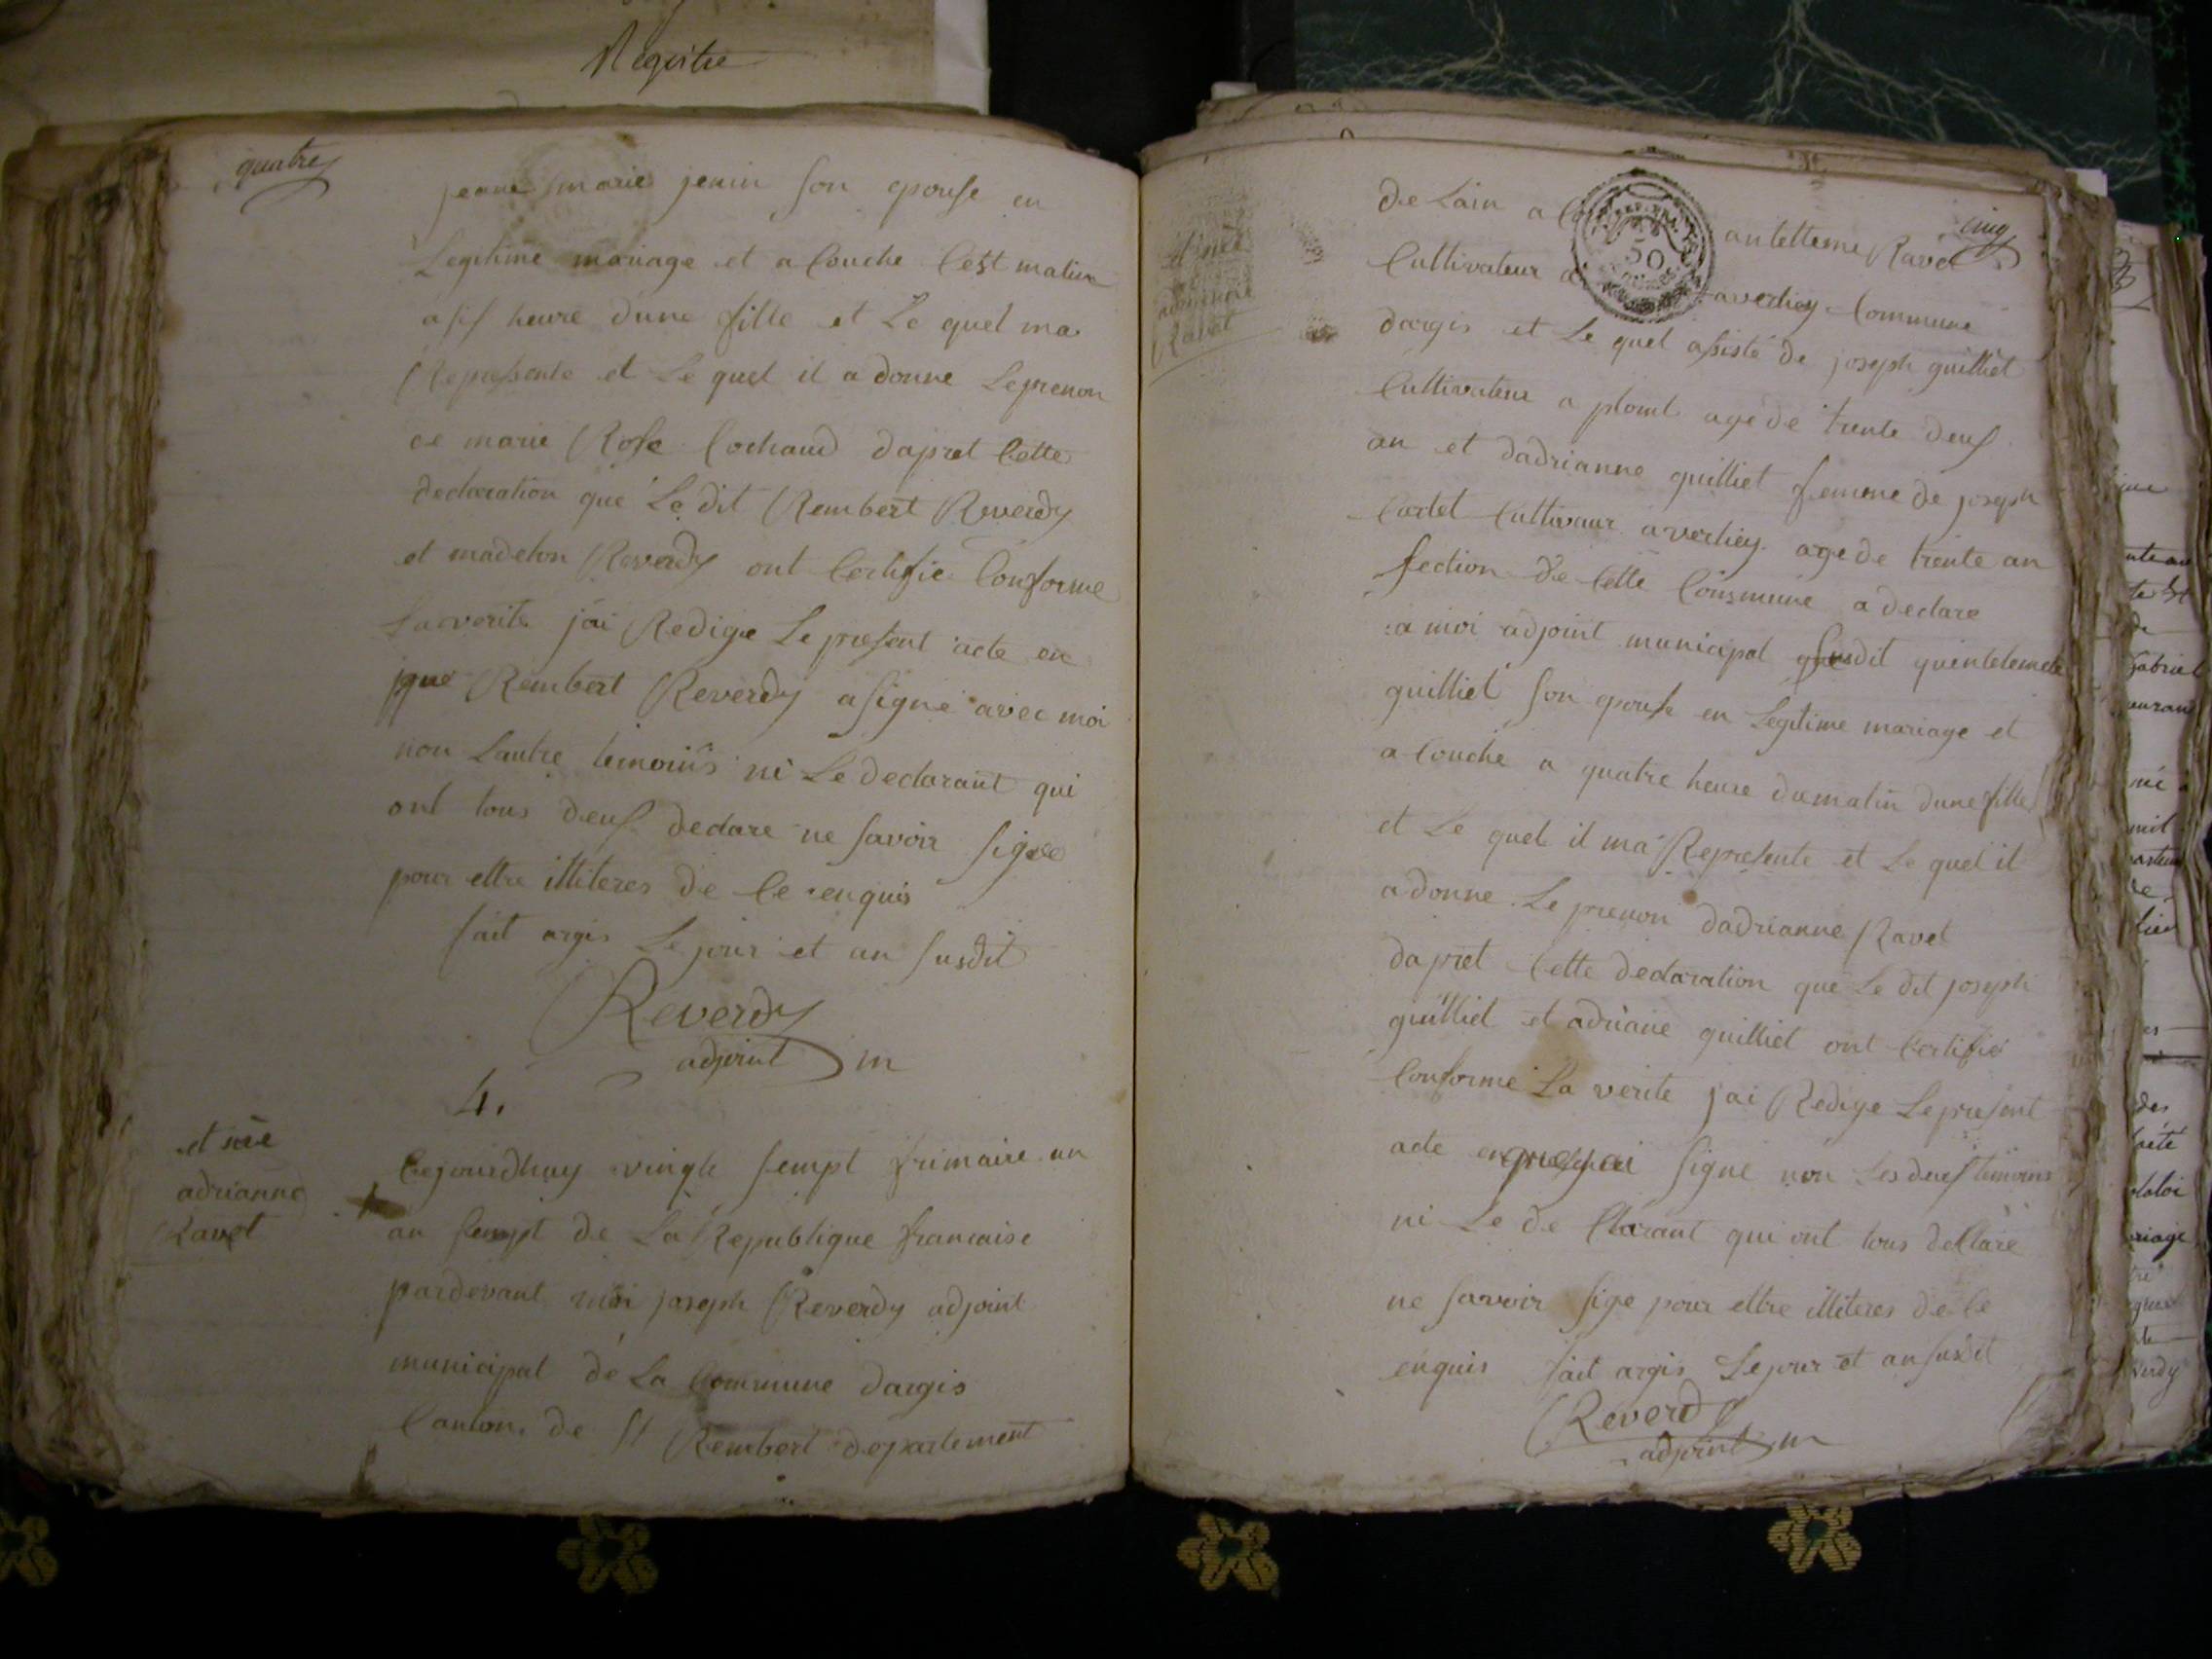 Registre
quatre
jeane marie jenin son epouse en
Legitime mariage et a Couche Cest matin
a sis heure dune fille et Le quel ma
Represente et Le quel il a donne Le prenon
de marie Rose Cochaud dapret Cette
declaration que Le dit Rembert Reverdy
et madelon Reverdy ont Certifie Conforme
La verite jai Redige Le present acte en
que Rembert Reverdy a signe avec moi
non Lautre temoins ni Le declarant qui
ont tous deus declare ne savoir signe
pour ettre illiteres de Ce enquis
fait argis Le jour et an susdit
Reverdy
adjoint m
4.
et née
adrianne
Ravet
Cejourdhuy vingte sempt frimaire an
an sempt de La Republique francaise
pardevant moi joseph Reverdy adjoint
municipal de La Commune dargis
Canton de St Rembert departement
cinq
de Lain a antelleme Ravet
50
Cultivateur averliey Commune
dargis et Le quel asisté de joseph guilliet
Cultivateur a plomt age de trente deus
an et dadrianne guilliet femme de joseph
Cartet Cultivaur a verliey age de trente an
section de Cette Commune a declare
a moi adjoint municipal susdit
guilliet son epouse en Legitime mariage et
a Couche a quatre heure dumatin dune fille
et Le quel il ma Represente et Le quel il
a donne Le prenon dadrianne Ravet
dapret Cette declaration que Le dit joseph
guilliet et adriane guilliet ont Certifié
Conforme La verite jai Redige Le present
acte signe non Les deus temoins
ni Le de Clarant qui ont tous declare
ne savoir sige pour ettre illiteres de Ce
enquis fait argis Le jour et an susdit
Reverdy
adjoint m